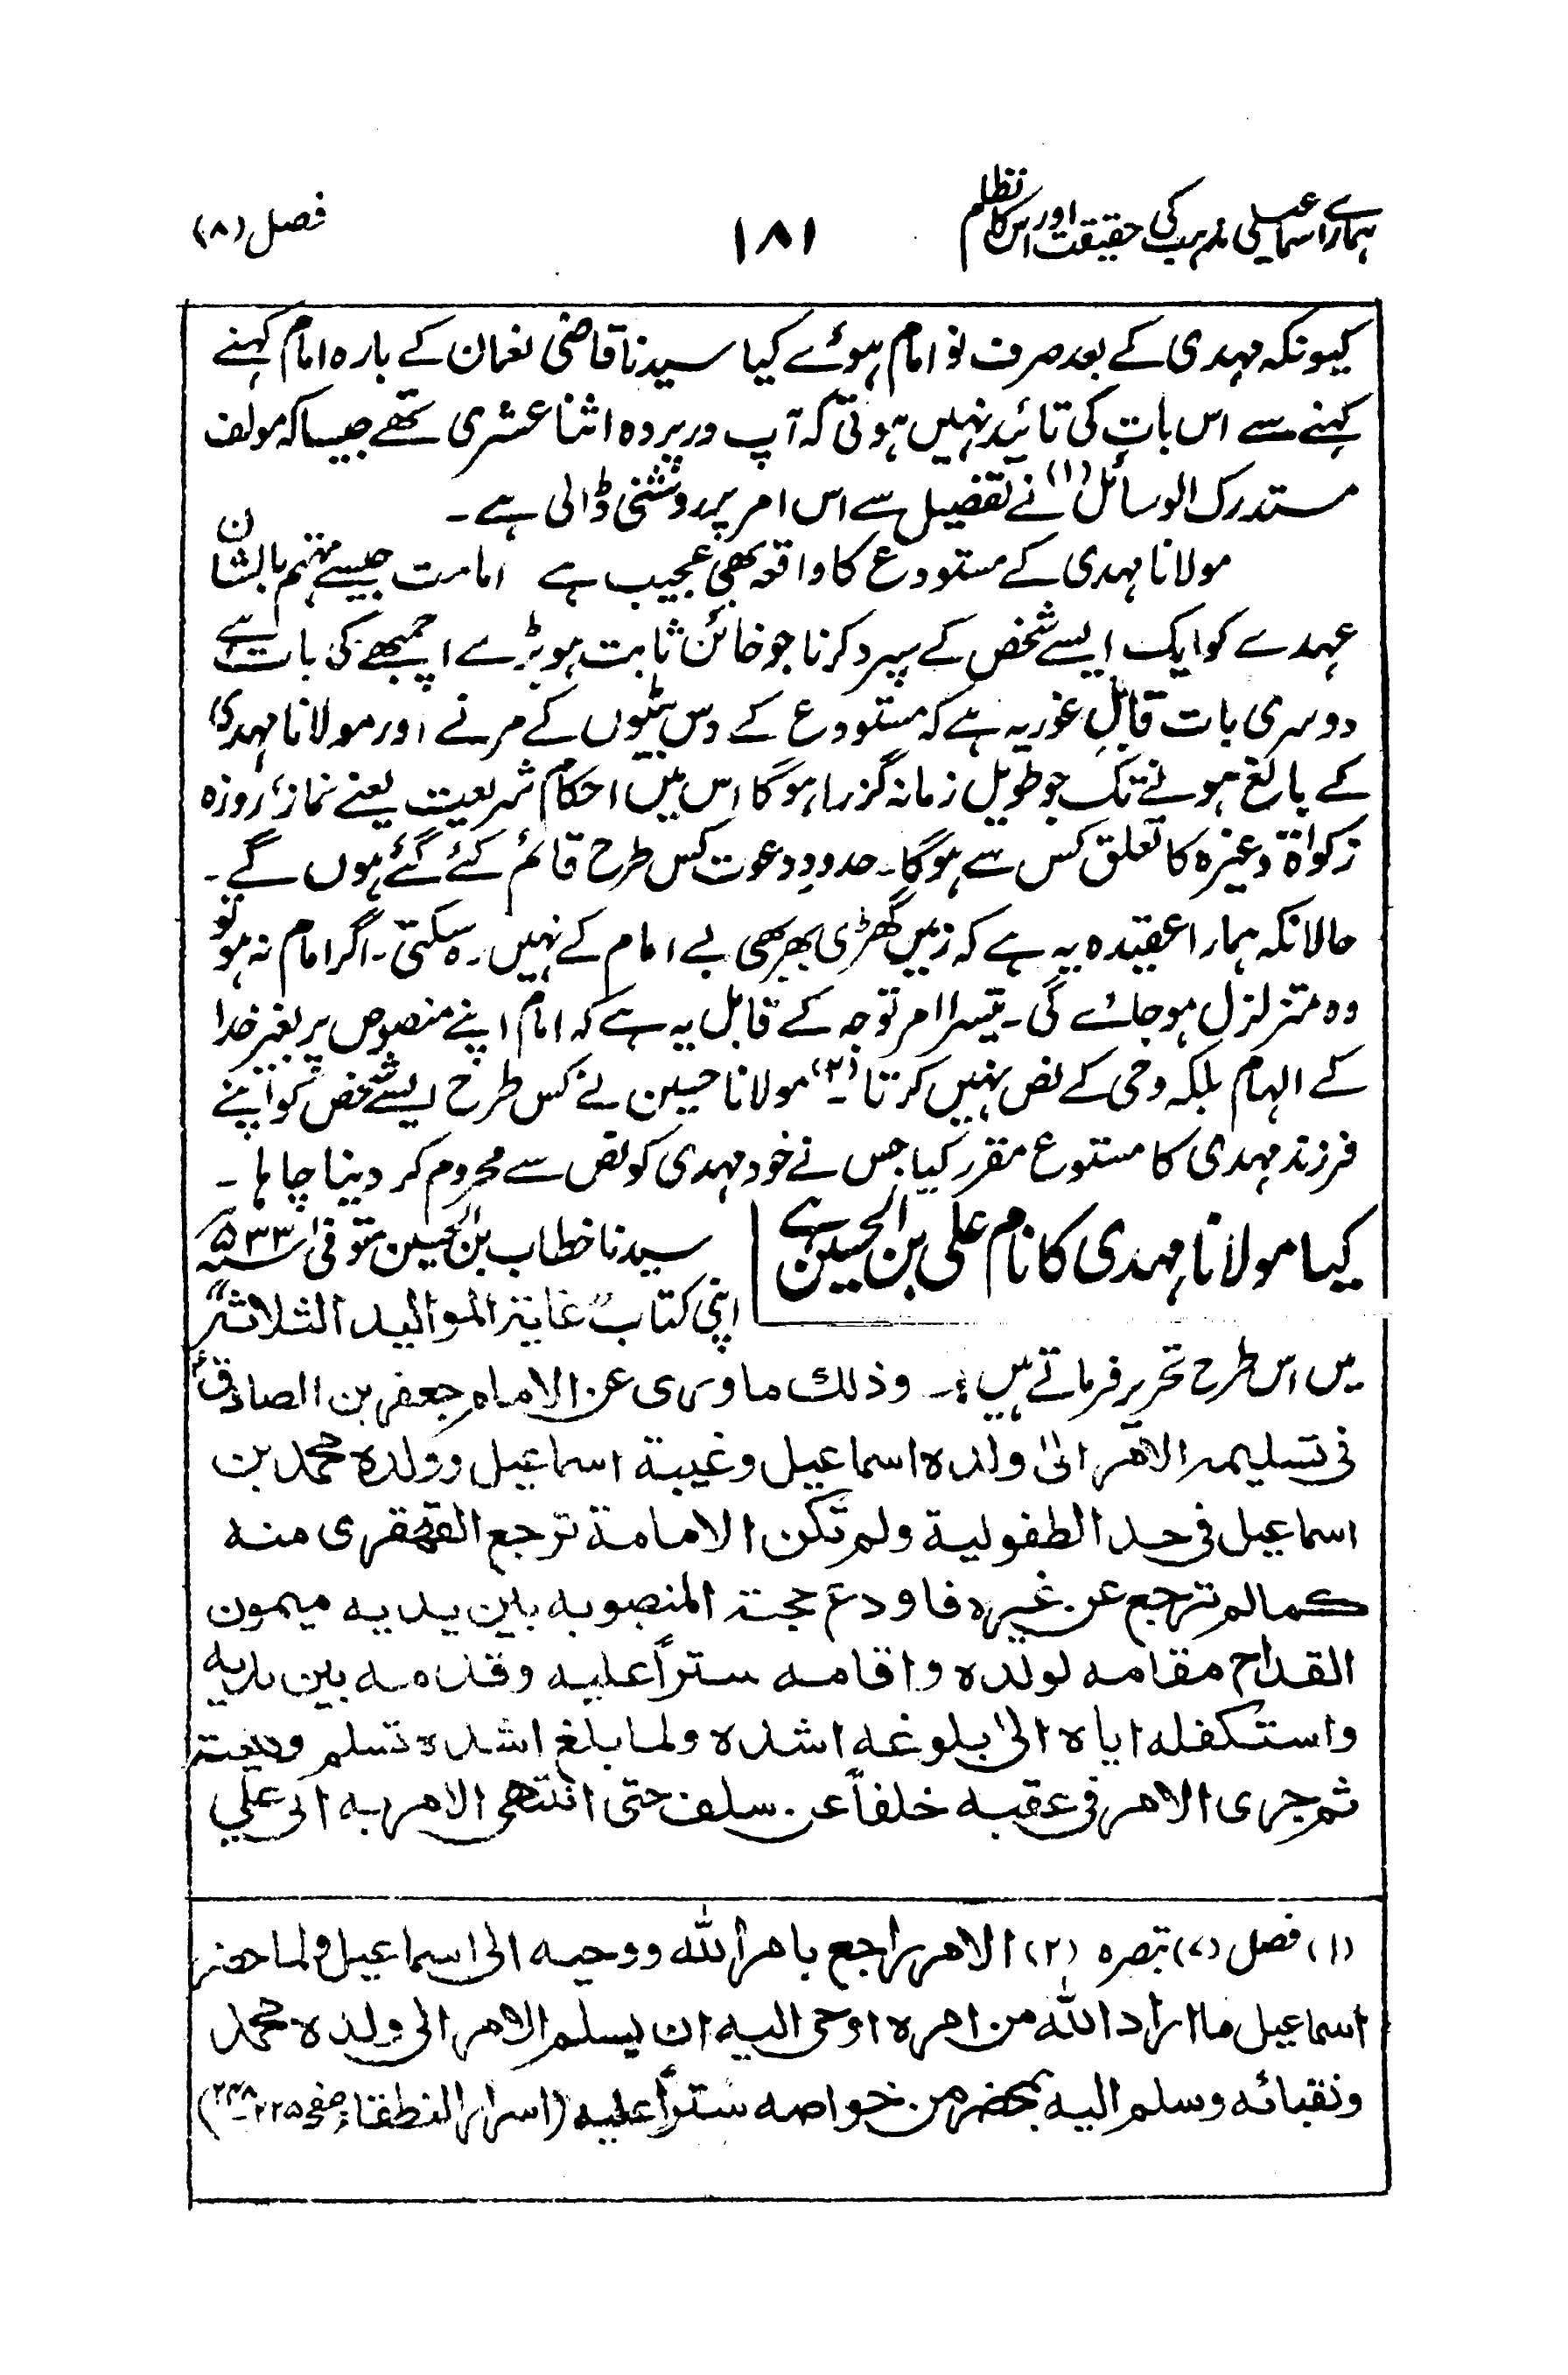 ہمارے اسماعیلی مذہب کی حقیقت اور اس کا نظام
۱۸۱
فصل (۸)
کیونکہ مہدی کے بعد صرف نو امام ہوئے کیا سیدنا قاضی نعمان کے بارہ امام کہنے
کہنے سے اس بات کی تائید نہیں ہوتی کہ آپ در پردہ اثنا عشری تھے جیسا کہ مولف
مستدرک الوسائل (۱) نے تفصیل سے اس امر پر روشنی ڈالی ہے ۔
مولانا مہدی کے مستودع کا واقعہ بھی عجیب ہے امامت جیسے مہتم بالشان
عہدے کو ایک ایسے شخص کے سپرد کرنا جو خائن ثابت ہو بڑے اچمبھے کی بات ہے
دوسری بات قابلِ غور یہ ہے کہ مستودع کے دس بیٹیوں کے مرنے اور مولانا مہدی
کے بالغ ہونے تک جو طویل زمانہ گزرا ہوگا اس میں احکام شریعت یعنے نماز، روزہ
زکواۃ وغیرہ کا تعلق کس سے ہوگا۔ حدودِ دعوت کس طرح قائم کئے گئے ہوں گے ۔
حالانکہ ہمارا عقیدہ یہ ہے کہ زمین گھڑی بھر بھی بے امام کے نہیں رہ سکتی ۔ اگر امام نہ ہو تو
وہ متزلزل ہو جائے گی ۔ تیسرا امر توجہ کے قابل یہ ہے کہ امام اپنے منصوص پر بغیر خدا
کے الہام بلکہ وحی کے نص نہیں کرتا (۲)۔ مولانا حسین نے کس طرح ایسے شخص کو اپنے
فرزند مہدی کا مستوع مقرر کیا جس نے خود مہدی کو نص سے محروم کر دینا چاہا ۔
کیا مولانا مہدی کا نام علی بن الحسین ہے
سیدنا خطاب بن الحسین متوفی ۵۳۳ھ
اپنی کتاب "غایۃ الموالید الثلاثۃ"
میں اس طرح تحریر فرماتے ہیں :۔ وذلك ما وری عن الامام جعفر بن الصادق
فی تسلیمہ الامر الیٰ ولدہ اسماعیل وغیبة اسماعیل وولدہ محمد بن
اسماعیل فی حد الطفولیة ولم تکن الامامة ترجع القهقری منه
کما لم ترجع عن غیرہ فاودع حجتہ المنصوبہ بین یدیه میمون
القداح مقامه لولدہ واقامه ستراً علیه وقدمه بین یدیه
واستکفله ایاہ الیٰ بلوغه اشدہ ولما بلغ اشدہ تسلم ودیعتہ
ثم جری الامر فی عقبه خلفاً عن سلف حتی انتهی الامر به الی علي
(۱) فصل (۷) تبصرہ (۲) الامر راجع بامر الله ووحیه الی اسماعیل ولما حضر
اسماعیل ما اراد الله من امرہ اوحی الیه ان یسلم الامر الی ولدہ محمد
ونقبائه وسلم الیه بمحضر من خواصه ستراً علیه (اسرار النطقاء صفحہ ۲۲۵-۲۳۸)